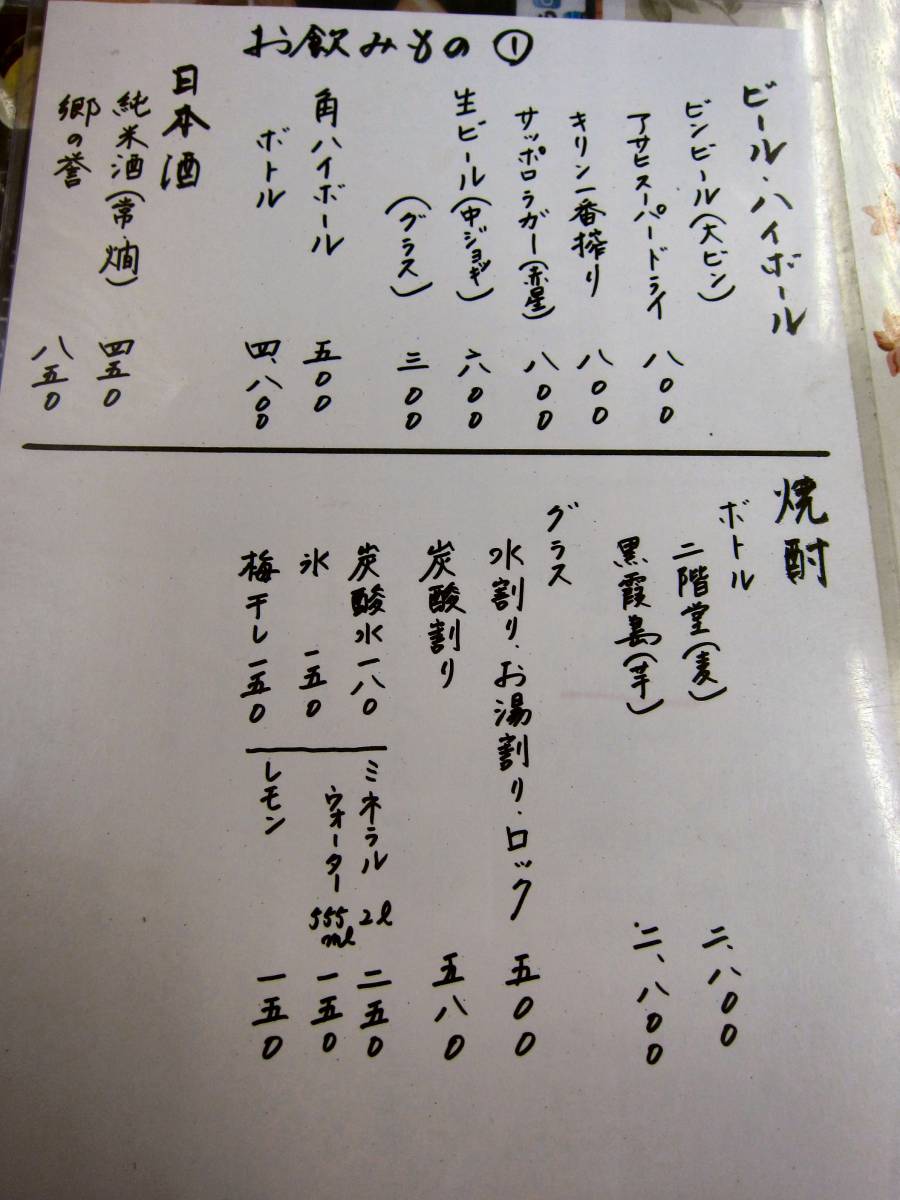 お飲みもの①
ビール・ハイボール
ビンビール(大ビン)
アサヒスーパードライ 八〇〇
キリン一番搾り 八〇〇
サッポロラガー(赤星) 八〇〇
生ビール(中ジョッキ) 六〇〇
(グラス) 三〇〇
角ハイボール 五〇〇
ボトル 四、八〇〇
日本酒
純米酒(常燗) 四五〇
郷の誉 八五〇
焼酎
ボトル
二階堂(麦) 二、八〇〇
黒霞島(芋) 二、八〇〇
グラス
水割り・お湯割り・ロック 五〇〇
炭酸割り 五八〇
炭酸水 一八〇
氷 一五〇
梅干し 一五〇
ミネラル 2l 二五〇
ウォーター 555ml 一五〇
レモン 一五〇